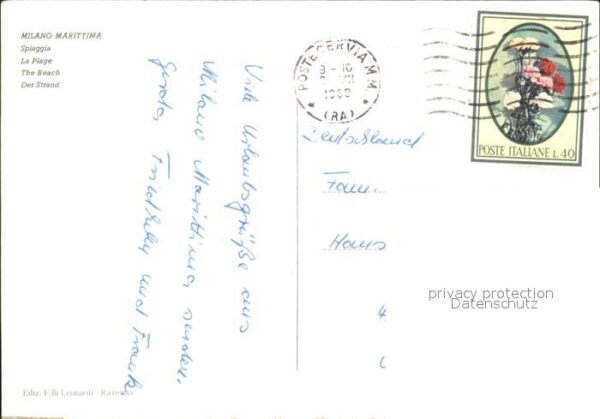 MILANO MARITTIMA
Spiaggia
La Plage
The Beach
Der Strand
Viele Urlaubsgrüße aus
Milano Marittima senden
und Frank
POSTE CERVIA M.M.
(RA)
POSTE ITALIANE L.40
Deutschland
Fam.
Hans
4
privacy protection
Privacy protection
Ediz. F.lli Leonardi - Ravenna